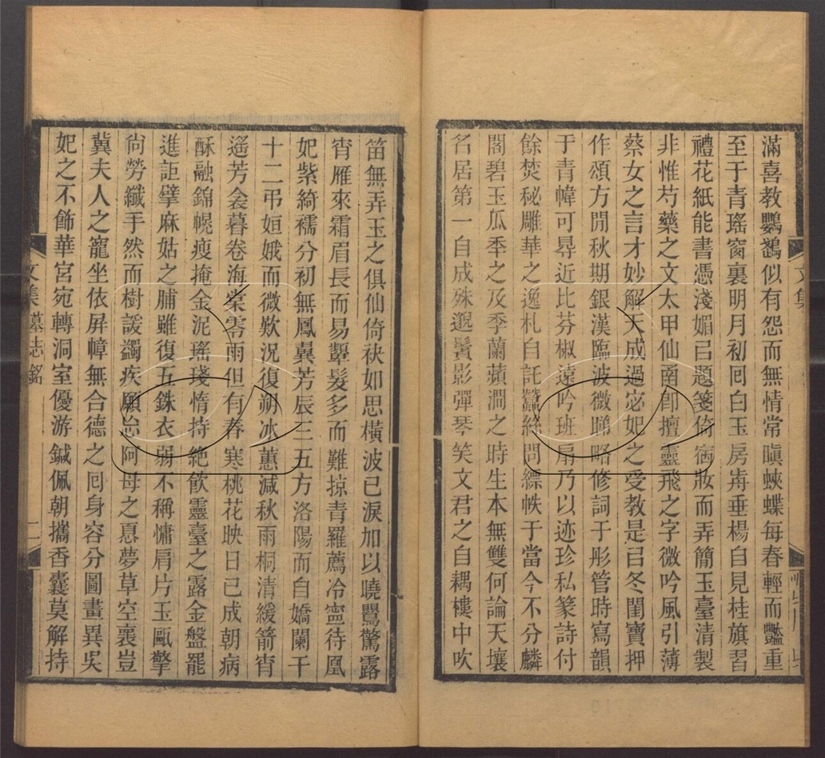 滿喜教鸚鵡似有怨而無情常瞋蛺蝶每春輕而豔重
至于青瑤窗裏明月初囘白玉房歬垂楊自見桂旗習
禮花紙能書憑淺媚㠯題箋倚宿妝而弄簡玉臺清製
非惟芍藥之文太甲仙函卽擅靈飛之字微吟風引薄
蔡女之言才妙解天成過宓妃之受教是㠯冬閨寶押
作頌方閒秋期銀漢臨波微睇略修詞于彤管時寫韻
于青幃可尋近比芬椒遠吟班扇乃以迹珍私篆詩付
餘焚秘雕華之逸札自託蠶絲問縹帙于當今不分麟
閣碧玉瓜秊之及季蘭蘋澗之時生本無雙何論天壤
名居第一自成殊邈鬢影彈琴笑文君之自耦樓中吹
笛無弄玉之俱仙倚袂如思橫波已淚加以曉鸎驚露
宵雁來霜眉長而易顰髮多而難掠青羅薦冷寍待凰
妃紫綺襦分初無鳳翼芳辰三五方洛陽而自嬌闌干
十二弔姮娥而微歎況復朔冰蕙減秋雨桐清緩箭宵
遥芳衾暮卷海棠零雨但有春寒桃花映日已成朝病
酥融錦幌瘦掩金泥瑤琖惰持絶飮靈臺之露金盤罷
進詎擘麻姑之脯雖復五銖衣弱不稱慵肩片玉甌擎
尙勞纖手然而樹諼蠲疾願怡阿母之悳夢草空褱豈
冀夫人之寵坐依屏幛無合德之囘身容分圖畫異吳
妃之不飾華宮宛轉洞室優游鍼佩朝攜香囊莫解持
文集墓志銘
二
文集